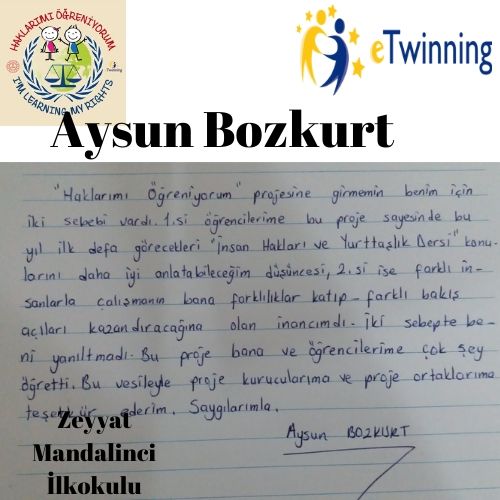 HAKLARIMI ÖĞRENİYORUM
I'M LEARNING MY RIGHTS
eTwinning
Aysun Bozkurt
"Haklarımı Öğreniyorum" projesine girmemin benim için
iki sebebi vardı. 1.si öğrencilerime bu proje sayesinde bu
yıl ilk defa görecekleri "İnsan Hakları ve Yurttaşlık Dersi" konu-
larını daha iyi anlatabileceğim düşüncesi, 2.si ise farklı in-
sanlarla çalışmanın bana farklılıklar katıp - farklı bakış
açıları kazandıracağına olan inancımdı. İki sebepte be-
ni yanıltmadı. Bu proje bana ve öğrencilerime çok şey
öğretti. Bu vesileyle proje kurucularıma ve proje ortaklarıma
teşekkür ederim. Saygılarımla.
Aysun BOZKURT
Zeyyat
Mandalinci
İlkokulu